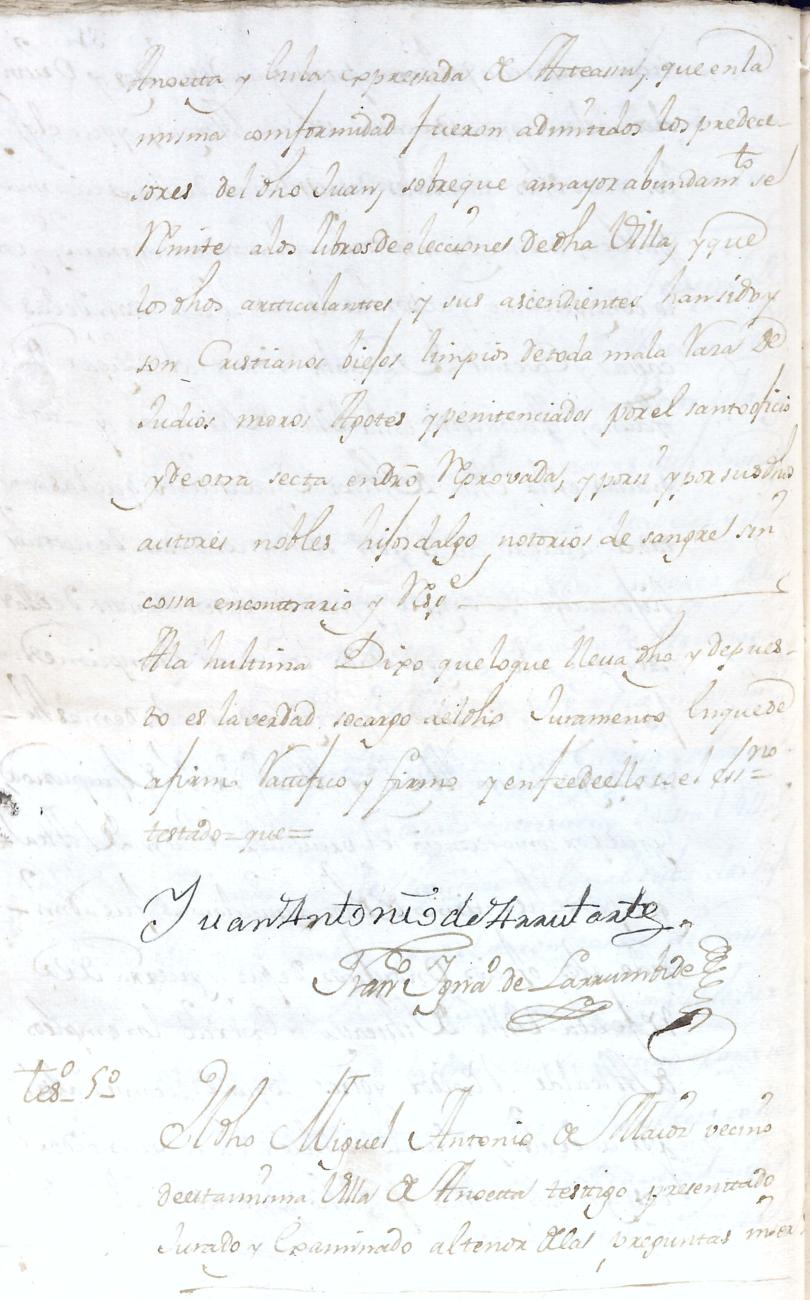 Anoetta y bula expressada de Arteassu, que en la
misma comformidad fueron admitidos los predece-
sores del dho Juan, sobre que a mayor abundamto se
Rmite a los libros de elecciones de dha Villa, y que
los dhos artticulanttes y sus ascendientes han sido y
son Cristianos biejos limpios de toda mala Raza de
Judios moros Agotes y penitenciados por el santo oficio
y de otra secta en dro Reprovada, y por si y por sus dhos
autores nobles hijosdalgo notorios de sangre sin
cossa en conttrario y Rde
A la hultima Dixo que lo que lleva dho y depues-
to es la verdad socargo del dho Juramento En que se
afirmo Rattifico y firmo y en fee de ello io el Essno
testado=que=
Juan Antonio de Arrutarte
Franco Ignao de Larrumbide
tego 5o
El dho Miguel Antonio de Maioz vecino
de esta misma Villa de Anoetta testtigo presenttado
Jurado y Examinado al tenor de las preguntas